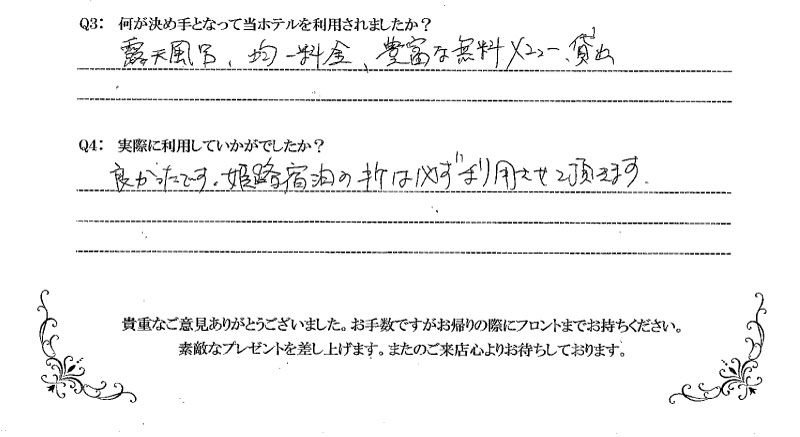 Q3: 何が決め手となって当ホテルを利用されましたか？
露天風呂、均一料金、豊富な無料メニュー、貸出
Q4: 実際に利用していかがでしたか？
良かったです。姫路宿泊の折は必ず利用させて頂きます。
貴重なご意見ありがとうございました。お手数ですがお帰りの際にフロントまでお持ちください。
素敵なプレゼントを差し上げます。またのご来店心よりお待ちしております。